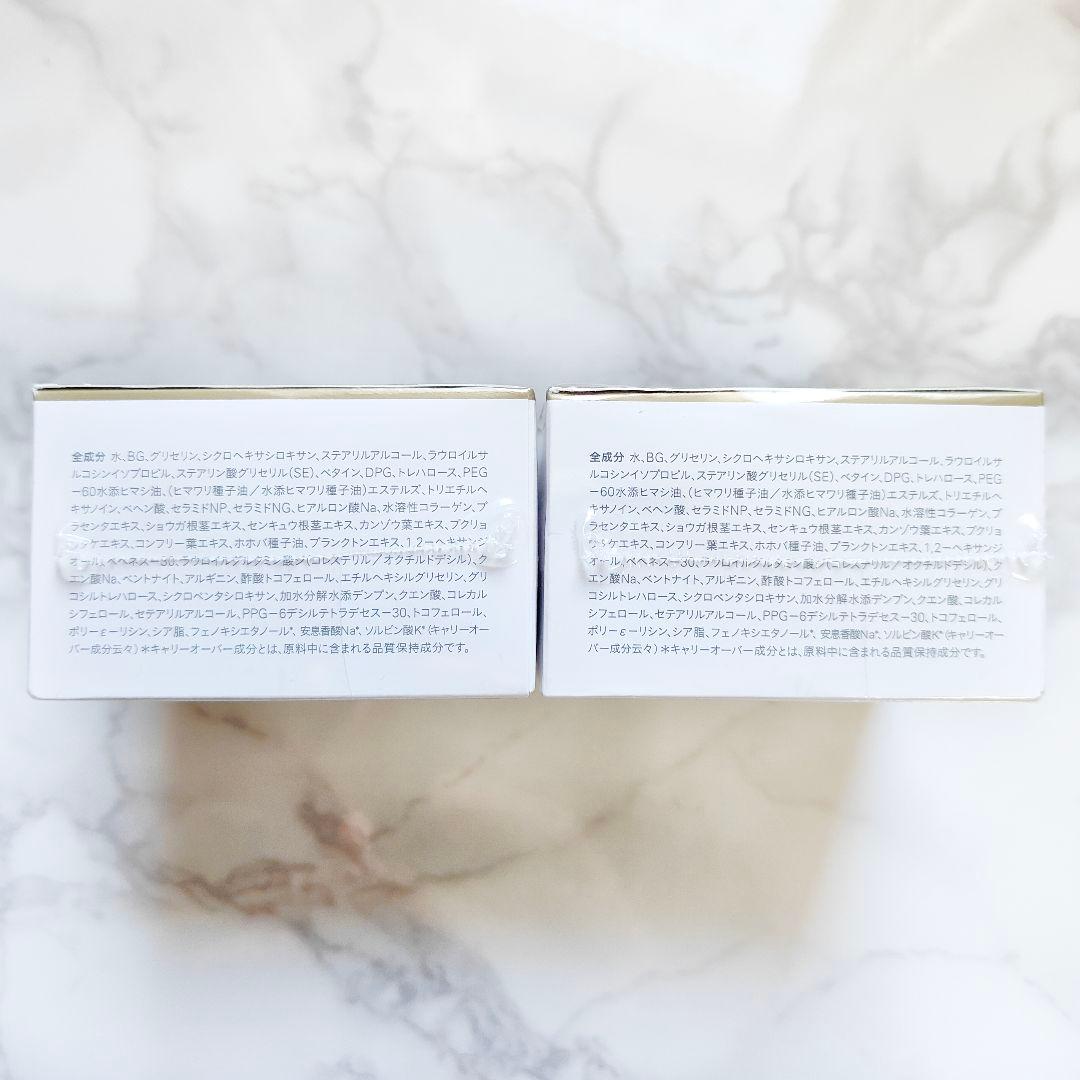 全成分 水、BG、グリセリン、シクロヘキサシロキサン、ステアリルアルコール、ラウロイルサ
ルコシンイソプロピル、ステアリン酸グリセリル(SE)、ベタイン、DPG、トレハロース、PEG
ー60水添ヒマシ油、(ヒマワリ種子油/水添ヒマワリ種子油)エステルズ、トリエチルヘ
キサノイン、ベヘン酸、セラミドNP、セラミドNG、ヒアルロン酸Na、水溶性コラーゲン、プ
ラセンタエキス、ショウガ根茎エキス、センキュウ根茎エキス、カンゾウ葉エキス、ブクリョ
ウタケエキス、コンフリー葉エキス、ホホバ種子油、プランクトンエキス、1,2ーヘキサンジ
オール、ベヘネスー30、ラウロイルグルタミン酸ジ(コレステリル/オクチルドデシル)、ク
エン酸Na、ベントナイト、アルギニン、酢酸トコフェロール、エチルヘキシルグリセリン、グリ
コシルトレハロース、シクロペンタシロキサン、加水分解水添デンプン、クエン酸、コレカル
シフェロール、セテアリルアルコール、PPGー6デシルテトラデセスー30、トコフェロール、
ポリーεーリシン、シア脂、フェノキシエタノール*、安息香酸Na*、ソルビン酸K*(キャリーオー
バー成分云々)*キャリーオーバー成分とは、原料中に含まれる品質保持成分です。
全成分 水、BG、グリセリン、シクロヘキサシロキサン、ステアリルアルコール、ラウロイルサ
ルコシンイソプロピル、ステアリン酸グリセリル(SE)、ベタイン、DPG、トレハロース、PEG
ー60水添ヒマシ油、(ヒマワリ種子油/水添ヒマワリ種子油)エステルズ、トリエチルヘ
キサノイン、ベヘン酸、セラミドNP、セラミドNG、ヒアルロン酸Na、水溶性コラーゲン、プ
ラセンタエキス、ショウガ根茎エキス、センキュウ根茎エキス、カンゾウ葉エキス、ブクリョ
ウタケエキス、コンフリー葉エキス、ホホバ種子油、プランクトンエキス、1,2ーヘキサンジ
オール、ベヘネスー30、ラウロイルグルタミン酸ジ(コレステリル/オクチルドデシル)、ク
エン酸Na、ベントナイト、アルギニン、酢酸トコフェロール、エチルヘキシルグリセリン、グリ
コシルトレハロース、シクロペンタシロキサン、加水分解水添デンプン、クエン酸、コレカル
シフェロール、セテアリルアルコール、PPGー6デシルテトラデセスー30、トコフェロール、
ポリーεーリシン、シア脂、フェノキシエタノール*、安息香酸Na*、ソルビン酸K*(キャリーオー
バー成分云々)*キャリーオーバー成分とは、原料中に含まれる品質保持成分です。